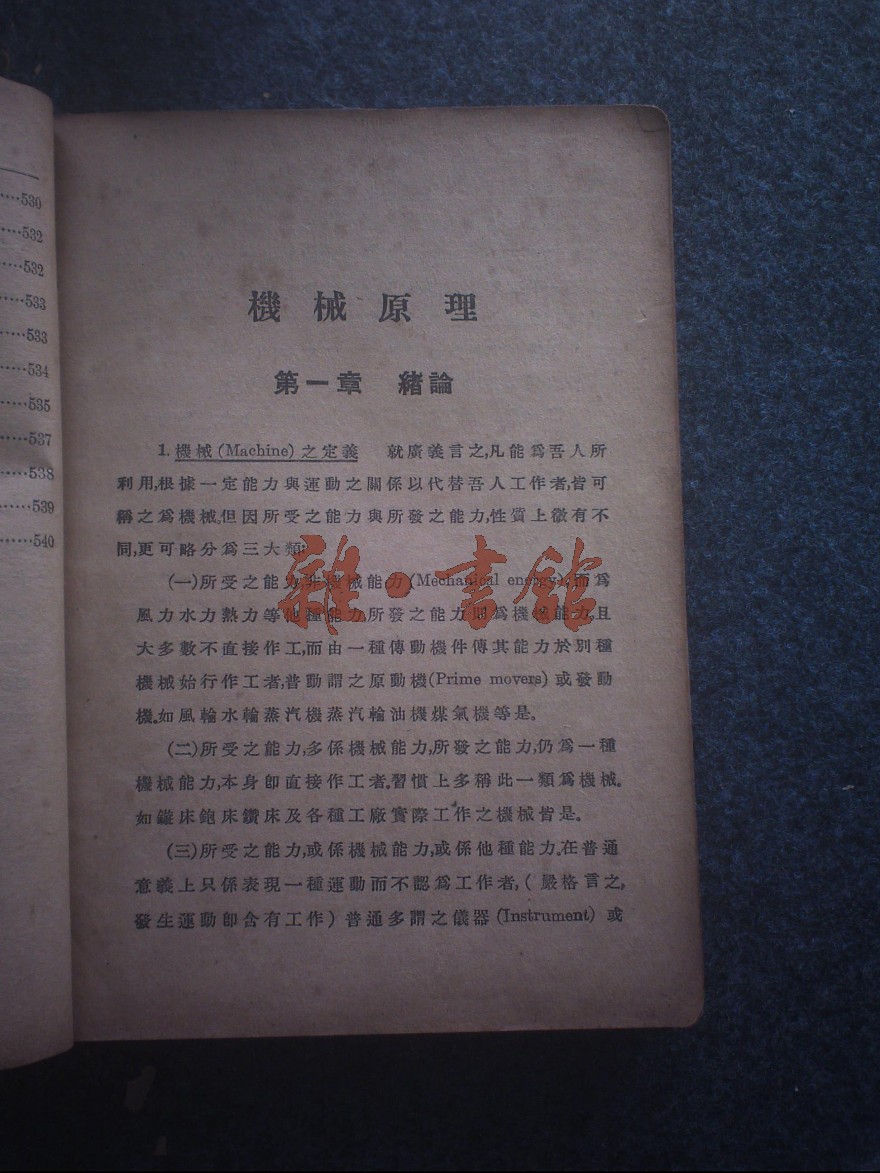 530
532
532
533
533
534
535
537
538
539
540
機械原理
第一章 緒論
1. 機械 (Machine) 之定義 就廣義言之,凡能爲吾人所
利用,根據一定能力與運動之關係以代替吾人工作者,皆可
稱之爲機械。但因所受之能力與所發之能力,性質上微有不
同,更可略分爲三大類:
(一)所受之能力,非機械能力 (Mechanical energy), 而爲
風力水力熱力等他種能力,所發之能力則爲機械能力,且
大多數不直接作工,而由一種傳動機件傳其能力於別種
機械始行作工者,普動謂之原動機(Prime movers) 或發動
機。如風輪水輪蒸汽機蒸汽輪油機煤氣機等是。
(二)所受之能力,多係機械能力,所發之能力,仍爲一種
機械能力,本身卽直接作工者。習慣上多稱此一類爲機械。
如鏇床鉋床鑽床及各種工廠實際工作之機械皆是。
(三)所受之能力,或係機械能力,或係他種能力。在普通
意義上只係表現一種運動而不認爲工作者,(嚴格言之,
發生運動卽含有工作) 普通多謂之儀器 (Instrument) 或
雜·書館